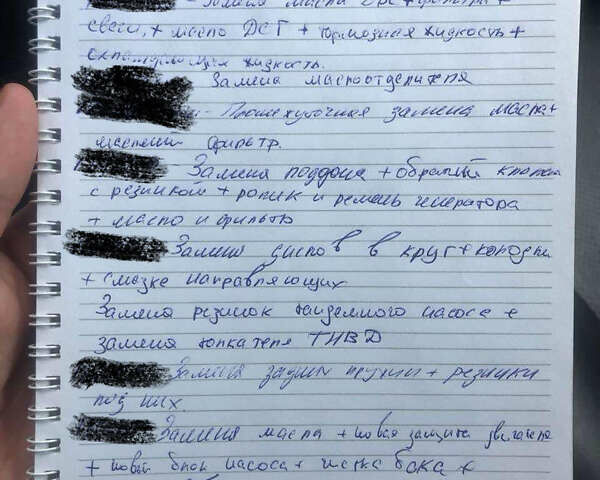 Замена масла ДВС + фильтра +
свечи, + масло ДСГ + тормозная жидкость +
охлаждающая жидкость.
Замена маслоотделителя
- Промежуточная замена масла +
масленый фильтр.
Замена поддона + обратный клапан
с резинкой + ролик и ремень генератора
+ масло и фильтр
Замена дисков в круг + колодки
+ смазка направляющих
Замена резинок тандемного насоса +
замена толкателя ТНВД
Замена задних пружин + резинки
под них.
Замена масла + новая защита двигателя
+ новый блок насоса + чистка бака +